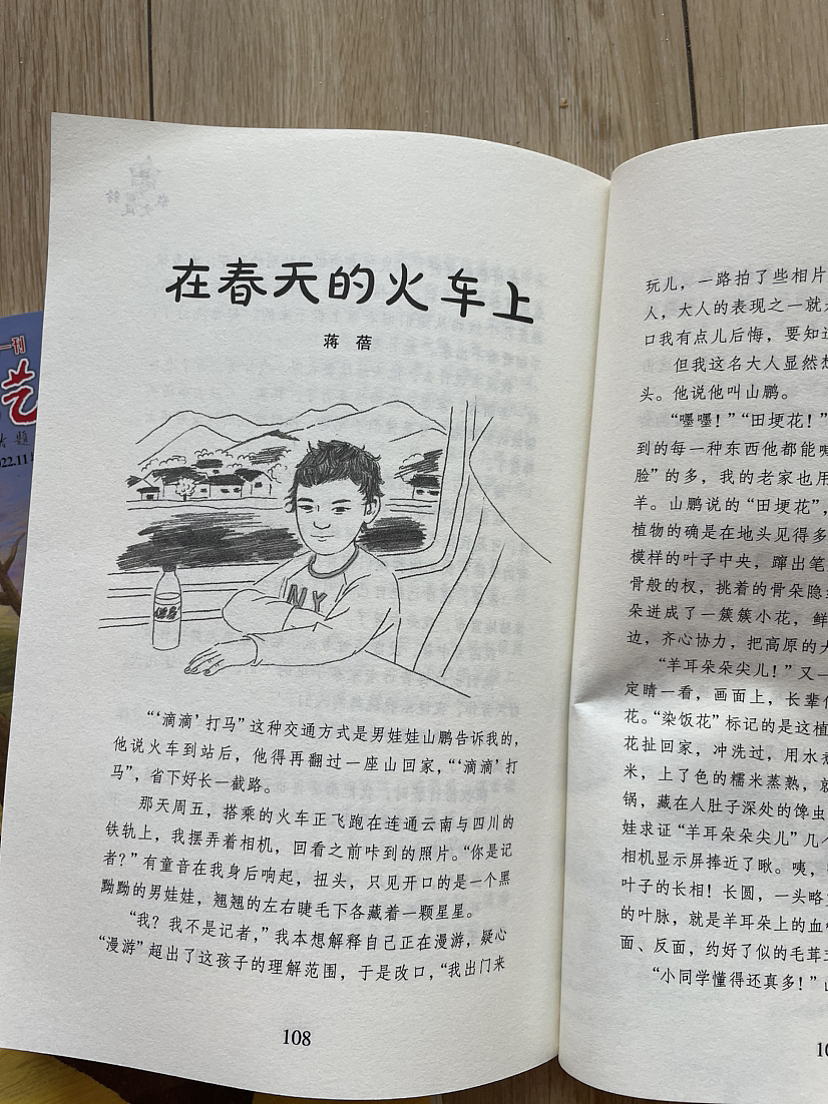 一刊
艺
在春天的火车上
蒋 蓓
NY
“‘滴滴’打马”这种交通方式是男娃娃山鹏告诉我的，
他说火车到站后，他得再翻过一座山回家，“‘滴滴’打
马”，省下好长一截路。
那天周五，搭乘的火车正飞跑在连通云南与四川的
铁轨上，我摆弄着相机，回看之前咔到的照片。“你是记
者？”有童音在我身后响起，扭头，只见开口的是一个黑
黝黝的男娃娃，翘翘的左右睫毛下各藏着一颗星星。
“我？我不是记者，”我本想解释自己正在漫游，疑心
“漫游”超出了这孩子的理解范围，于是改口，“我出门来
108
玩儿，一路拍了些相片
人，大人的表现之一就
口我有点儿后悔，要知
但我这名大人显然
头。他说他叫山鹏。
“嘿嘿！”“田埂花！”
到的每一种东西他都能
脸”的多，我的老家也用
羊。山鹏说的“田埂花”，
植物的确是在地头见得多
模样的叶子中央，蹿出笔
骨般的杈，挑着的骨朵隐
朵迸成了一簇簇小花，鲜
边，齐心协力，把高原的大
“羊耳朵朵尖儿！”又一
定睛一看，画面上，长辈
花。“染饭花”标记的是这植
花扯回家，冲洗过，用水
米，上了色的糯米蒸熟，
锅，藏在人肚子深处的馋虫
娃求证“羊耳朵朵尖儿”几
相机显示屏捧近了瞅。咦，
叶子的长相！长圆，一头略
的叶脉，就是羊耳朵上的血
面、反面，约好了似的毛茸
“小同学懂得还真多！”